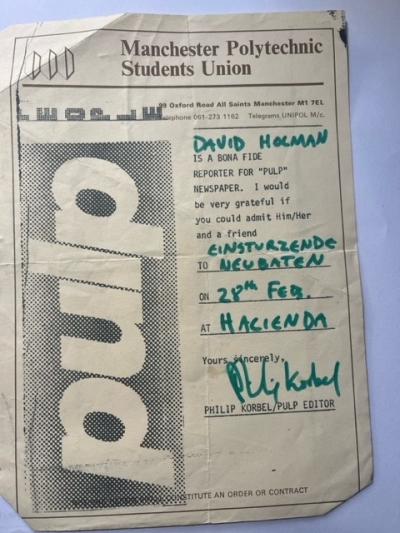 Manchester Polytechnic
Students Union
99 Oxford Road All Saints Manchester M1 7EL
Telephone 061-273 1162 Telegrams UNIPOL M/c.
pulp
DAVID HOLMAN
IS A BONA FIDE
REPORTER FOR "PULP"
NEWSPAPER. I would
be very grateful if
you could admit Him/Her
and a friend
EINSTURZENDE
TO NEUBATEN
ON 28th FEB.
AT HACIENDA
Yours sincerely,
Philip Korbel
PHILIP KORBEL/PULP EDITOR
CONSTITUTE AN ORDER OR CONTRACT